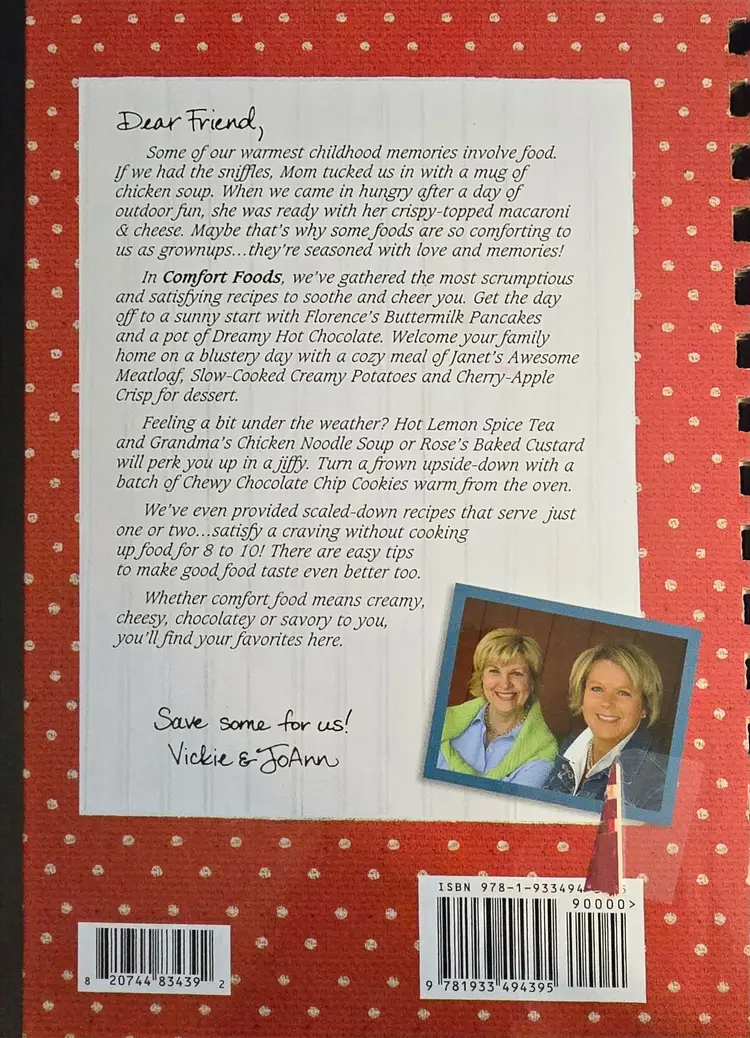 Dear Friend,
Some of our warmest childhood memories involve food.
If we had the sniffles, Mom tucked us in with a mug of
chicken soup. When we came in hungry after a day of
outdoor fun, she was ready with her crispy-topped macaroni
& cheese. Maybe that's why some foods are so comforting to
us as grownups...they're seasoned with love and memories!
In Comfort Foods, we've gathered the most scrumptious
and satisfying recipes to soothe and cheer you. Get the day
off to a sunny start with Florence's Buttermilk Pancakes
and a pot of Dreamy Hot Chocolate. Welcome your family
home on a blustery day with a cozy meal of Janet's Awesome
Meatloaf, Slow-Cooked Creamy Potatoes and Cherry-Apple
Crisp for dessert.
Feeling a bit under the weather? Hot Lemon Spice Tea
and Grandma's Chicken Noodle Soup or Rose's Baked Custard
will perk you up in a jiffy. Turn a frown upside-down with a
batch of Chewy Chocolate Chip Cookies warm from the oven.
We've even provided scaled-down recipes that serve just
one or two...satisfy a craving without cooking
up food for 8 to 10! There are easy tips
to make good food taste even better too.
Whether comfort food means creamy,
cheesy, chocolatey or savory to you,
you'll find your favorites here.
Save some for us!
Vickie & JoAnn
ISBN 978-1-933494
90000>
9 781933 494395
8 20744 83439 2